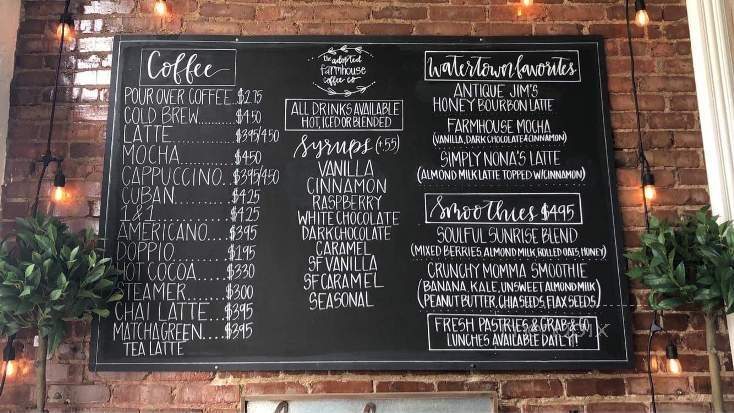 Coffee
POUR OVER COFFEE..$2.75
COLD BREW.........$4.50
LATTE..............$3.95/4.50
MOCHA.............$4.50
CAPPUCCINO..$3.95/4.50
CUBAN............$4.25
1&1................$4.25
AMERICANO....$3.95
DOPPIO...........$1.95
HOT COCOA.....$3.30
STEAMER........$3.00
CHAI LATTE...$3.95
MATCHA GREEN....$3.95
TEA LATTE
the adopted
farmhouse
coffee co
ALL DRINKS AVAILABLE
HOT, ICED OR BLENDED
Syrups (+.55)
VANILLA
CINNAMON
RASPBERRY
WHITE CHOCOLATE
DARK CHOCOLATE
CARAMEL
SF VANILLA
SF CARAMEL
SEASONAL
Watertown favorites
ANTIQUE JIM'S
HONEY BOURBON LATTE
FARMHOUSE MOCHA
(VANILLA, DARK CHOCOLATE & CINNAMON)
SIMPLY NONA'S LATTE
(ALMOND MILK LATTE TOPPED W/CINNAMON)
Smoothies $4.95
SOULFUL SUNRISE BLEND
(MIXED BERRIES, ALMOND MILK, ROLLED OATS, HONEY)
CRUNCHY MOMMA SMOOTHIE
(BANANA, KALE, UNSWEET ALMOND MILK
PEANUT BUTTER, CHIA SEEDS, FLAX SEEDS)
FRESH PASTRIES & GRAB & GO
LUNCHES AVAILABLE DAILY!!